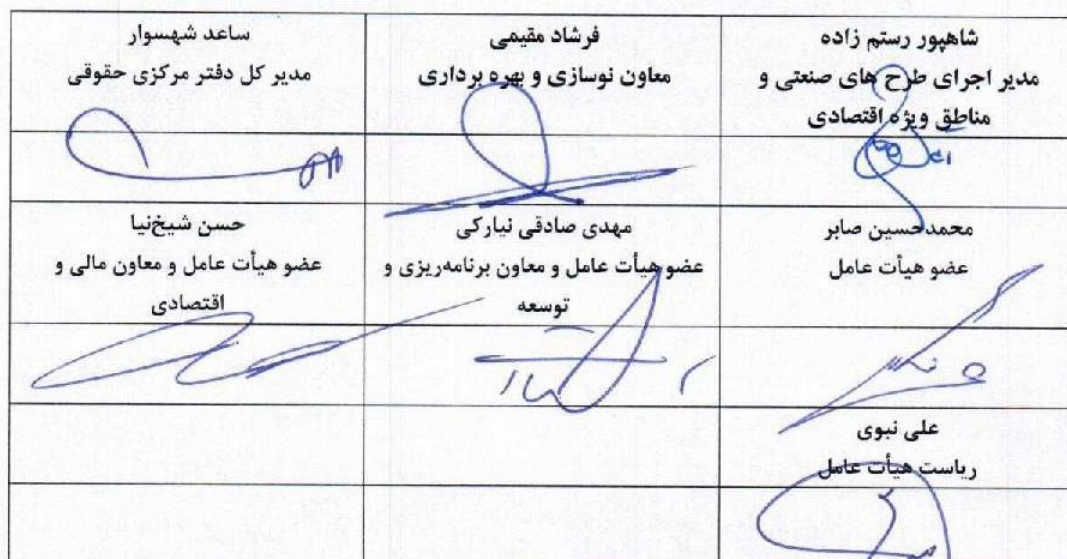 شاهپور رستم زاده
مدیر اجرای طرح های صنعتی و
مناطق ویژه اقتصادی
فرشاد مقیمی
معاون نوسازی و بهره برداری
ساعد شهسوار
مدیر کل دفتر مرکزی حقوقی
محمدحسین صابر
عضو هیأت عامل
مهدی صادقی نیارکی
عضو هیأت عامل و معاون برنامه‌ریزی و
توسعه
حسن شیخ‌نیا
عضو هیأت عامل و معاون مالی و
اقتصادی
علی نبوی
ریاست هیأت عامل